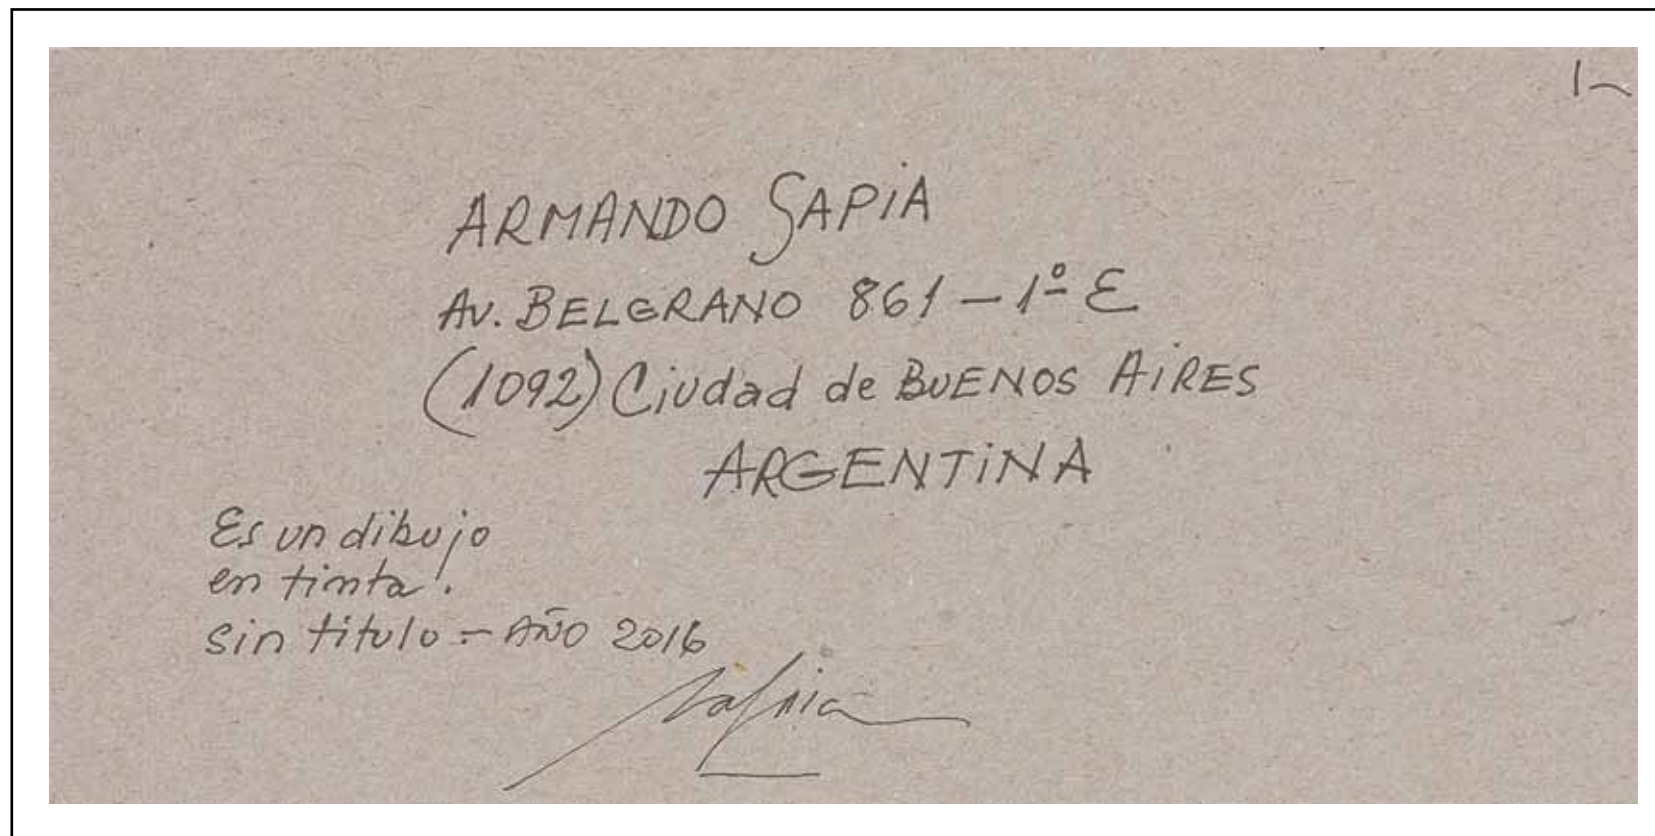 ARMANDO SAPiA
AV. BELGRANO 861 - 1º E
(1092) Ciudad de BUENOS AiRES
ARGENTiNA
Es un dibujo
en tinta!
sin título - AÑO 2016
Sapia